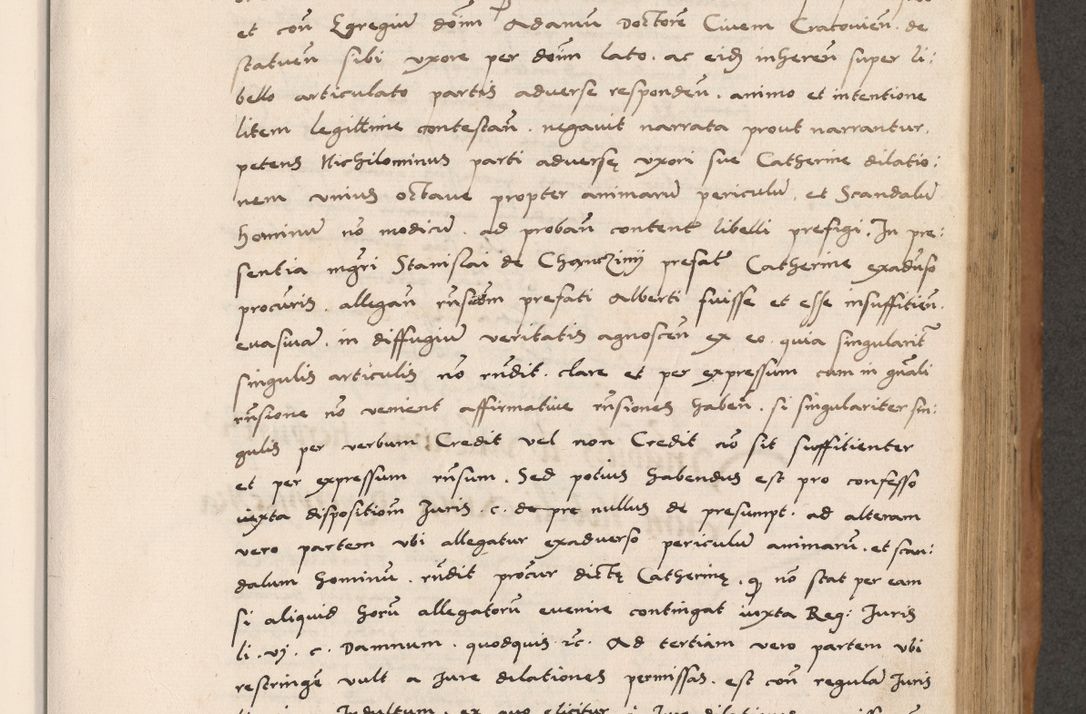 et coñ Egregiũ doĩm Adamũ Doctorē Civem Cracovieñ. de
statueñ sibi uxore per doĩm lato. ac eidȝ inhereñ super li:
bello articulato partis adverse respondeñ. animo et intentione
litem legittime contestañ. negavit narrata prout narrantur.
petens Nichilominus parti adversę uxori sue Catherine dilatio:
nem unius octave propter animarũ periculũ. et Scandalũ
hominũ nō modicũ. ad probañ content̃ libelli prefigi. In pre:
sentia mgr̃i Stanislai de Chanczinij prefat̃ Catherine exadũso
procur̃is. allegañ rñsum prefati Alberti fuisse et esse insuffitieñ.
evasivã. in diffugiũ veritatis agnosceñ ex eo. quia singularit̃
singulis articulis nō rñdit. clare et per expressum cum in gñali
rñsione nō venient affirmative rñsiones habeñ. si singulariter sin:
gulis per verbum Credit vel non Credit nō sit suffitienter
et per expressum rñsum. Sed potius habendus est pro confesso
iuxta dispositioñ Juris c. de pre nullus de presumpt. ad alteram
vero partem ubi allegatur exadverso periculũ animarũ. et scan:
dalum hominũ. rñdit procur̃ dictę Catherinę. ꝙ nō stat per eam
si aliquid horũ allegatorũ evenire contingat iuxta Reg: Juris
li. vj. c. Damnum. quodquis. ꝛc. Ad tertiam vero partem ubi
restringẽ vult a Jure dilationes permissas. est coñ regulã Juris